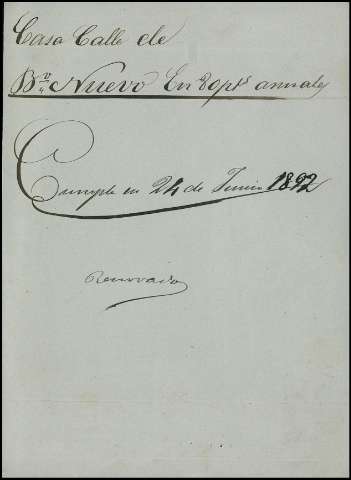 Casa Calle de
Bº Nuevo En 80 pts anuales
Cumple en 24 de Junio 1892
Renovado